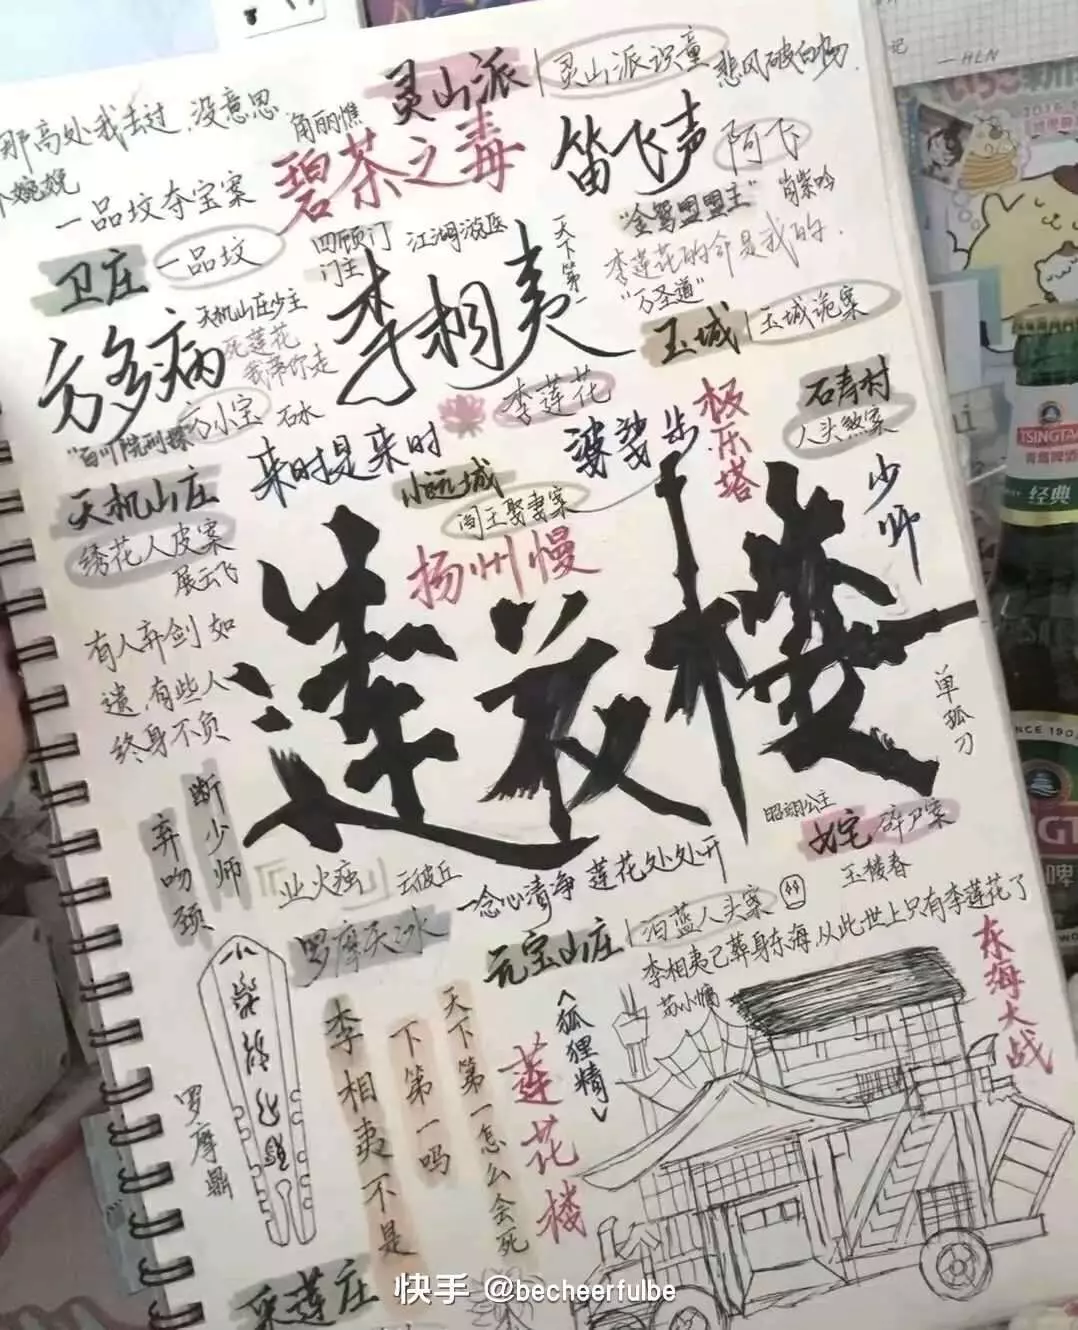 灵山派 灵山派识童 悲风破白杨
那高处我去过,没意思
角丽憔
碧茶之毒 笛飞声 阿飞
婉娩
一品坟夺宝案
"金鸳盟盟主" 肖紫吟
卫庄 一品坟
四顾门 江湖游医
门主
天下第一
李莲花的命是我的.
"万圣道"
方多病 天机山庄少主
死莲花
我带你走
李相夷
玉城 玉城诡案
方小宝 石水
李莲花
极乐塔
石寿村
人头煞案
"百川院刑探"
来时是来时
婆娑步
天机山庄
小远城
少师
绣花人皮案
阎王娶妻案
展云飞
扬州慢
莲花楼
有人弃剑如
遗,有些人
终身不负
单孤刀
断少师
弃吻颈
昭翎公主
碎尸案
玉楼春
业火痋 云彼丘
一念心清净 莲花处处开
罗摩天冰
元宝山庄 泊蓝人头案
李相夷已葬身东海,从此世上只有李莲花了
苏小慵
东海大战
<狐狸精>
莲花楼
李相夷不是
天下第一吗
天下第一怎么会死
罗摩鼎
采莲庄
快手 @becheerfulbe
记
HLN
TSINGTAO
经典
SINCE 1903